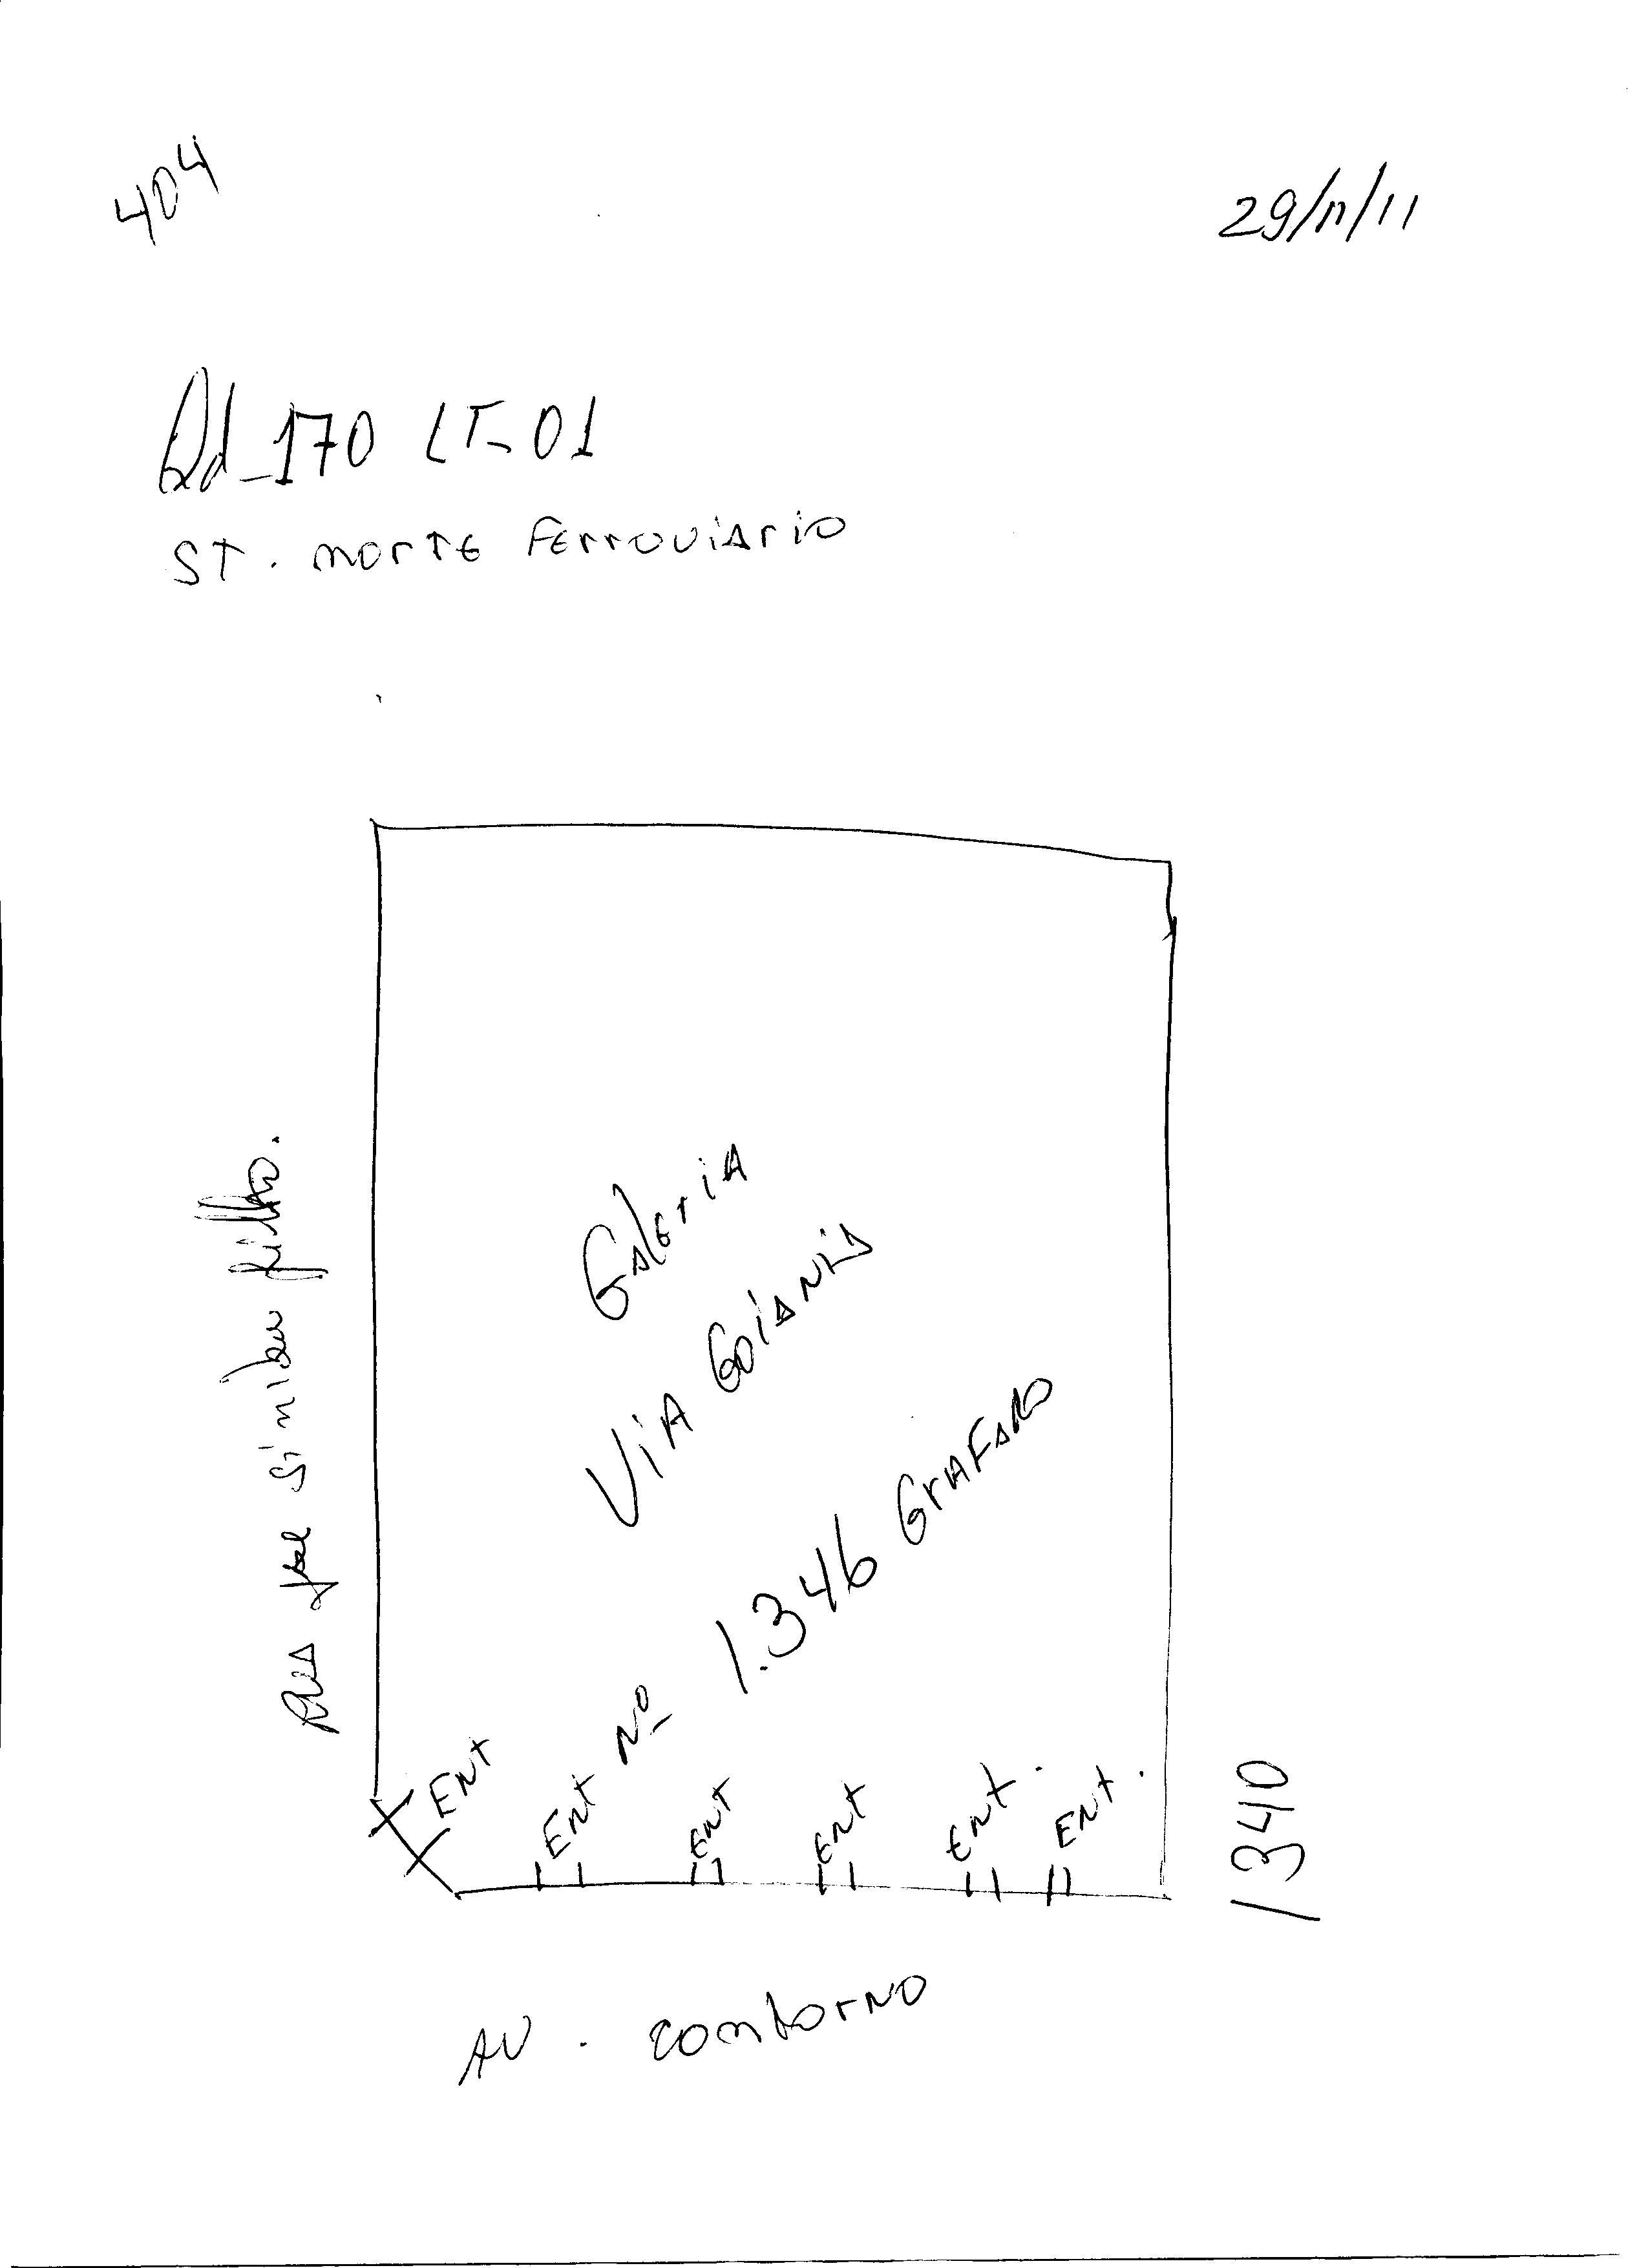 404
29/11/11
Qd_170 LT-01
ST. NORTE FERROVIARIO
GALERIA
VIA GOIANIA
Nº 1.346 GRAFADO
RUA filho.
ENT
ENT
ENT
ENT
ENT.
ENT.
1340
AV. contorno